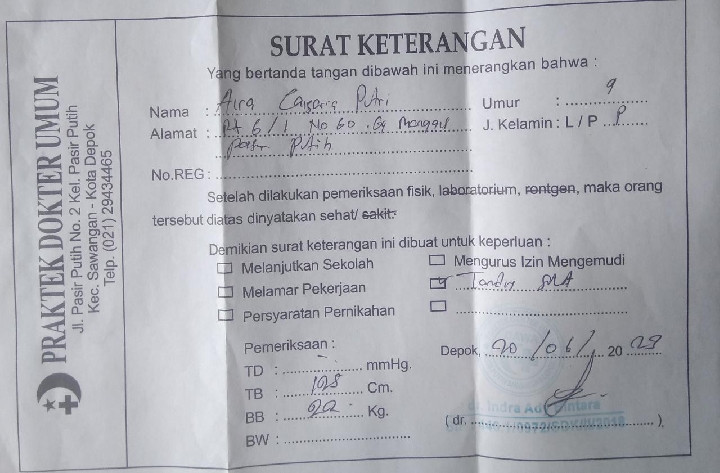 PRAKTEK DOKTER UMUM
Jl. Pasir Putih No. 2 Kel. Pasir Putih
Kec. Sawangan - Kota Depok
Telp. (021) 29434465
SURAT KETERANGAN
Yang bertanda tangan dibawah ini menerangkan bahwa :
Nama : Aira Putri
Umur : 9
Alamat : Rt 6/1 No 60 . Gg
J. Kelamin : L / P P
Pasir Putih
No.REG :
Setelah dilakukan pemeriksaan fisik, laboratorium, rontgen, maka orang
tersebut diatas dinyatakan sehat/ sakit.
Demikian surat keterangan ini dibuat untuk keperluan :
Melanjutkan Sekolah
Mengurus Izin Mengemudi
Melamar Pekerjaan
Persyaratan Pernikahan
Pemeriksaan :
Depok, 20/06/ 20
TD : mmHg.
TB : 128 Cm.
BB : 22 Kg.
(dr. Indra )
BW :